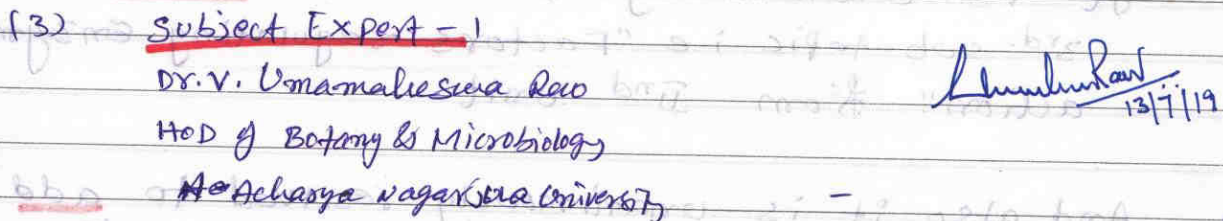 (3) Subject Expert - 1
Dr. V. Umamaheswa Rao
HoD of Botany & Microbiology
Acharya Nagarjuna University -
13/7/19
add